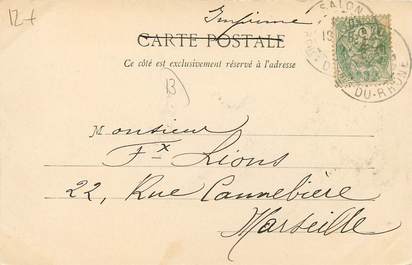 12+
Imprimé
CARTE POSTALE
Ce côté est exclusivement réservé à l'adresse
SALON
DU-RHONE
13
Monsieur
Fx Lions
22, Rue Cannebière
Marseille